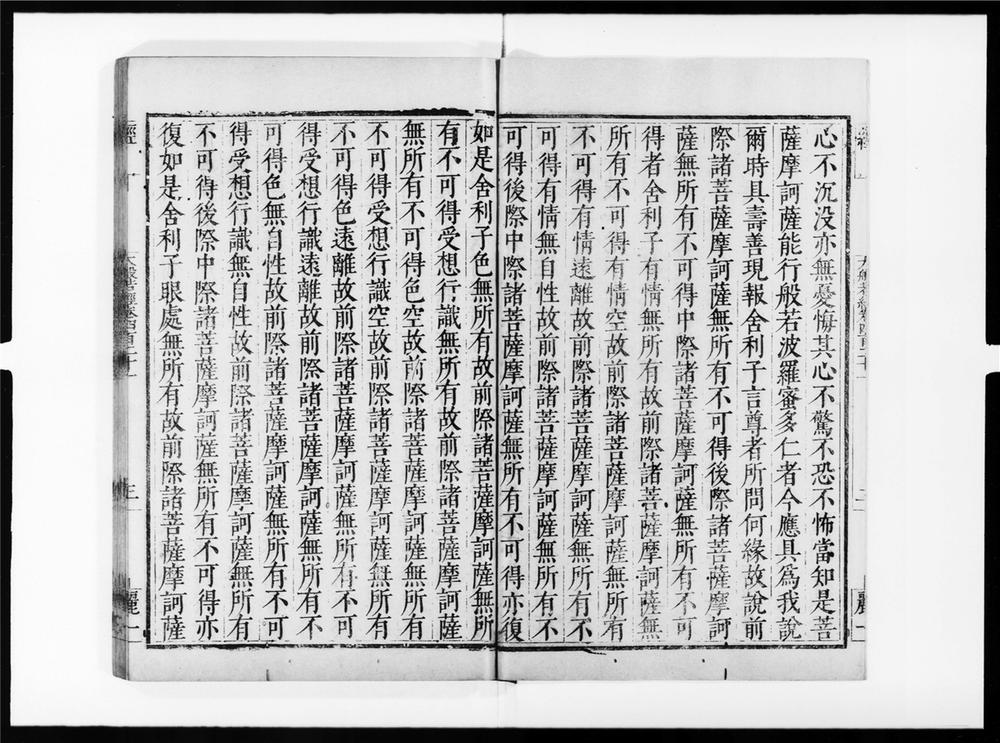 心不沉没亦無憂悔其心不驚不恐不怖當知是菩
薩摩訶薩能行般若波羅蜜多仁者今應具爲我說
爾時具壽善現報舍利子言尊者所問何緣故說前
際諸菩薩摩訶薩無所有不可得後際諸菩薩摩訶
薩無所有不可得中際諸菩薩摩訶薩無所有不可
得者舍利子有情無所有故前際諸菩薩摩訶薩無
所有不可得有情空故前際諸菩薩摩訶薩無所有
不可得有情遠離故前際諸菩薩摩訶薩無所有不
可得有情無自性故前際諸菩薩摩訶薩無所有不
可得後際中際諸菩薩摩訶薩無所有不可得亦復
如是舍利子色無所有故前際諸菩薩摩訶薩無所
有不可得受想行識無所有故前際諸菩薩摩訶薩
無所有不可得色空故前際諸菩薩摩訶薩無所有
不可得受想行識空故前際諸菩薩摩訶薩無所有
不可得色遠離故前際諸菩薩摩訶薩無所有不可
得受想行識遠離故前際諸菩薩摩訶薩無所有不
可得色無自性故前際諸菩薩摩訶薩無所有不可
得受想行識無自性故前際諸菩薩摩訶薩無所有
不可得後際中際諸菩薩摩訶薩無所有不可得亦
復如是舍利子眼處無所有故前際諸菩薩摩訶薩